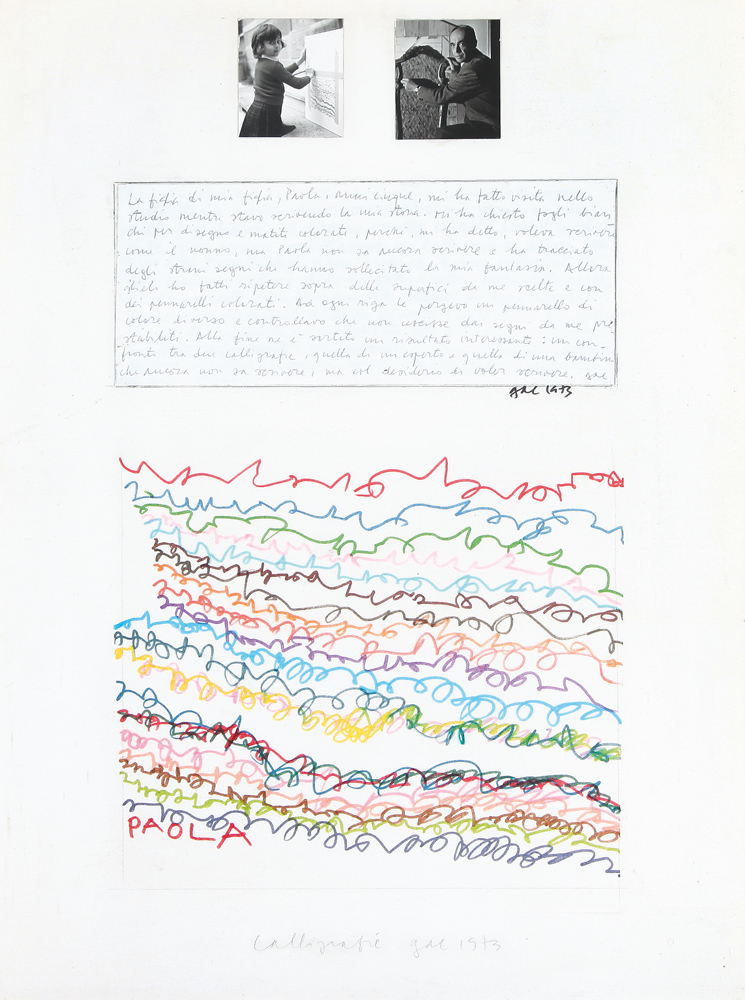 La figlia di mia figlia, Paola, anni cinque, mi ha fatto visita nello
studio mentre stavo scrivendo la mia storia. Mi ha chiesto fogli bian
chi per disegno e matite colorate, perché, mi ha detto, voleva scrivere
come il nonno, ma Paola non sa ancora scrivere e ha tracciato
degli strani segni che hanno sollecitato la mia fantasia. Allora
glieli ho fatti ripetere sopra delle superfici da me scelte e con
dei pennarelli colorati. Ad ogni riga le porgevo un pennarello di
colore diverso e controllavo che non uscisse dai segni da me pre
stabiliti. Alla fine ne è sortito un risultato interessante: un con-
fronto tra due calligrafie, quella di un esperto e quella di una bambina
che ancora non sa scrivere, ma col desiderio di voler scrivere. gal
gal 1973
PAOLA
Calligrafie gal 1973